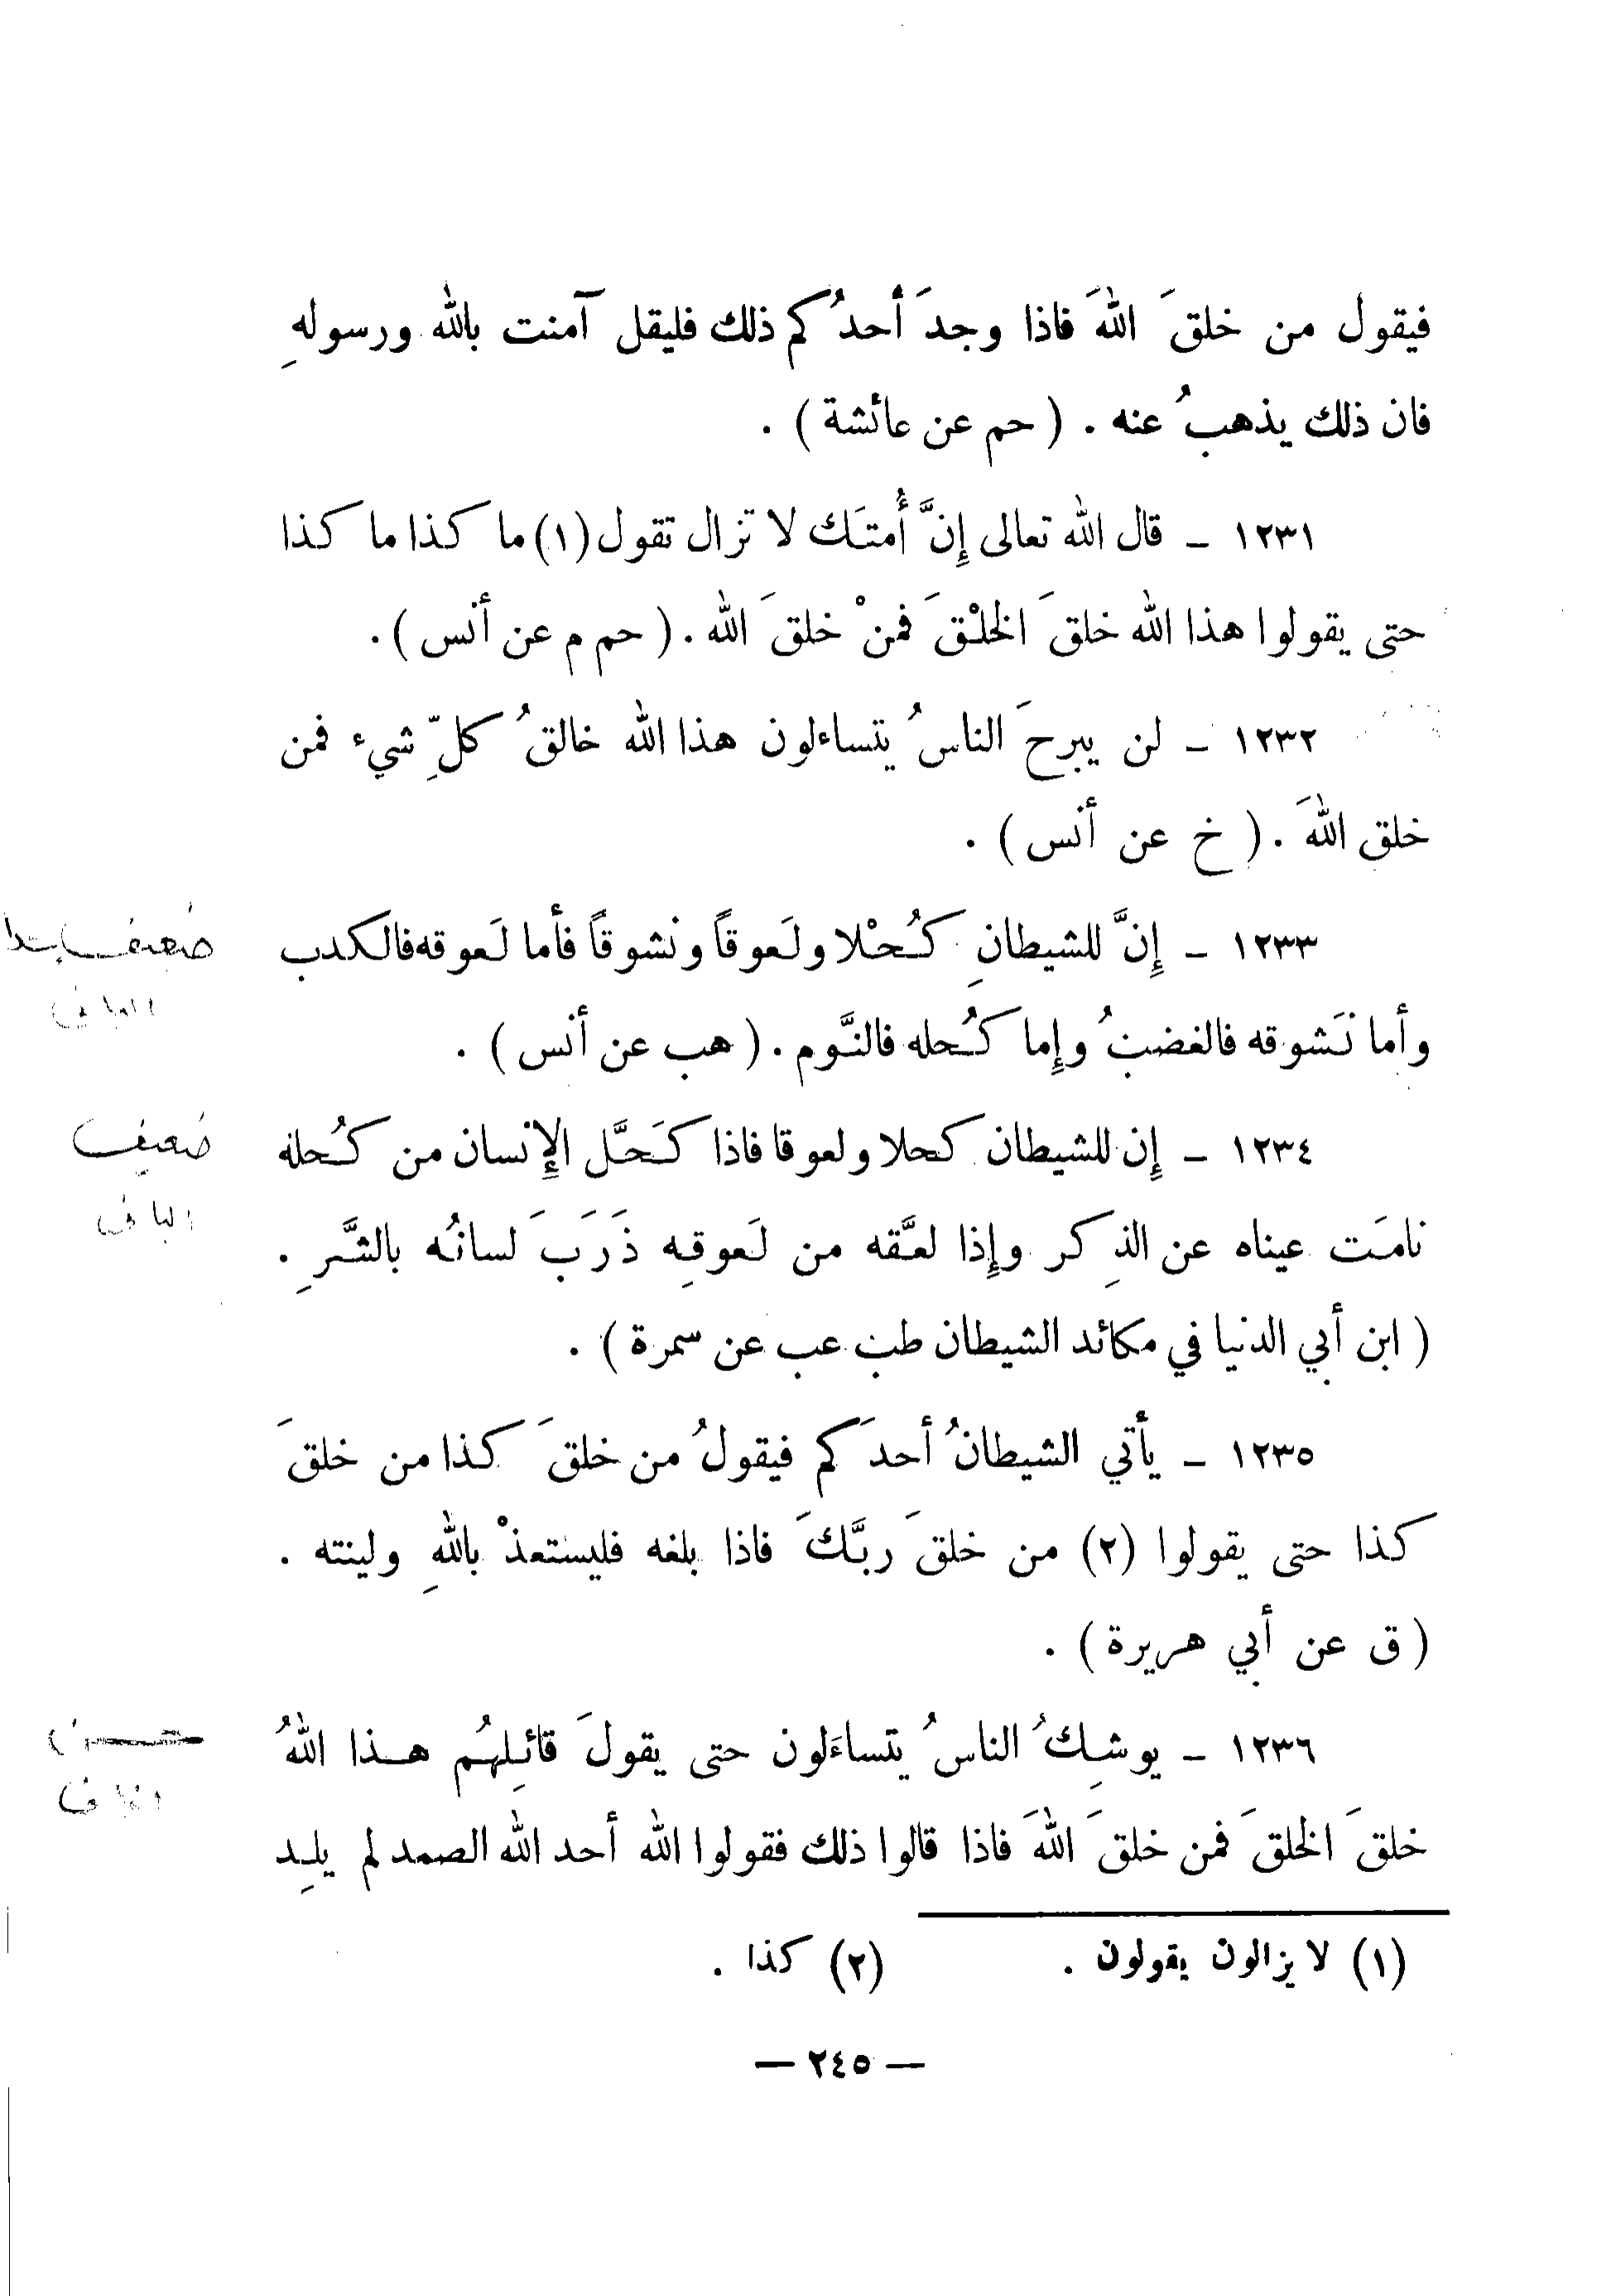 فيقول من خلقَ اللهَ فاذا وجدَ أحدُكم ذلك فليقل آمنت بالله ورسولهِ
فان ذلك يذهبُ عنه . ( حم عن عائشة ) .
١٢٣١ ــ قال الله تعالى إِنَّ أُمتَك لا تزال تقول (١) ما كذا ما كذا
حتى يقولوا هذا الله خلقَ الخلْقَ فمنْ خلقَ الله . ( حم م عن أنس ) .
١٢٣٢ ــ لن يبرحَ الناسُ يتساءلون هذا الله خالقُ كلِّ شيء فمن
خلق اللهَ . ( خ عن أنس ) .
١٢٣٣ ــ إِنَّ للشيطانِ كُحْلا ولَعوقاً ونشوقاً فأما لَعوقه فالكدب
وأما نَشوقه فالغضبُ وإِما كُحله فالنَّوم . ( هب عن أنس ) .
ضعيف جدا
١٢٣٤ ــ إِن للشيطان كحلا ولعوقا فاذا كَحَّل الإِنسان من كُحله
نامَت عيناه عن الذِكر وإِذا لعَّقه من لَعوقِه ذَرَبَ لسانُه بالشَّرِ .
( ابن أبي الدنيا في مكائد الشيطان طب عب عن سمرة ) .
ضعيف
١٢٣٥ ــ يأتي الشيطانُ أحدَكم فيقولُ من خلقَ كذا من خلقَ
كذا حتى يقولوا (٢) من خلقَ ربَّكَ فاذا بلغه فليستعذْ باللهِ ولينته .
( ق عن أبي هريرة ) .
١٢٣٦ ــ يوشِكُ الناسُ يتساءَلون حتى يقولَ قائلِهُم هذا اللهُ
خلقَ الخلقَ فمن خلقَ اللهَ فاذا قالوا ذلك فقولوا الله أحد الله الصمد لم يلِد
حسن
(١) لا يزالون يقولون .
(٢) كذا .
— ٢٤٥ —